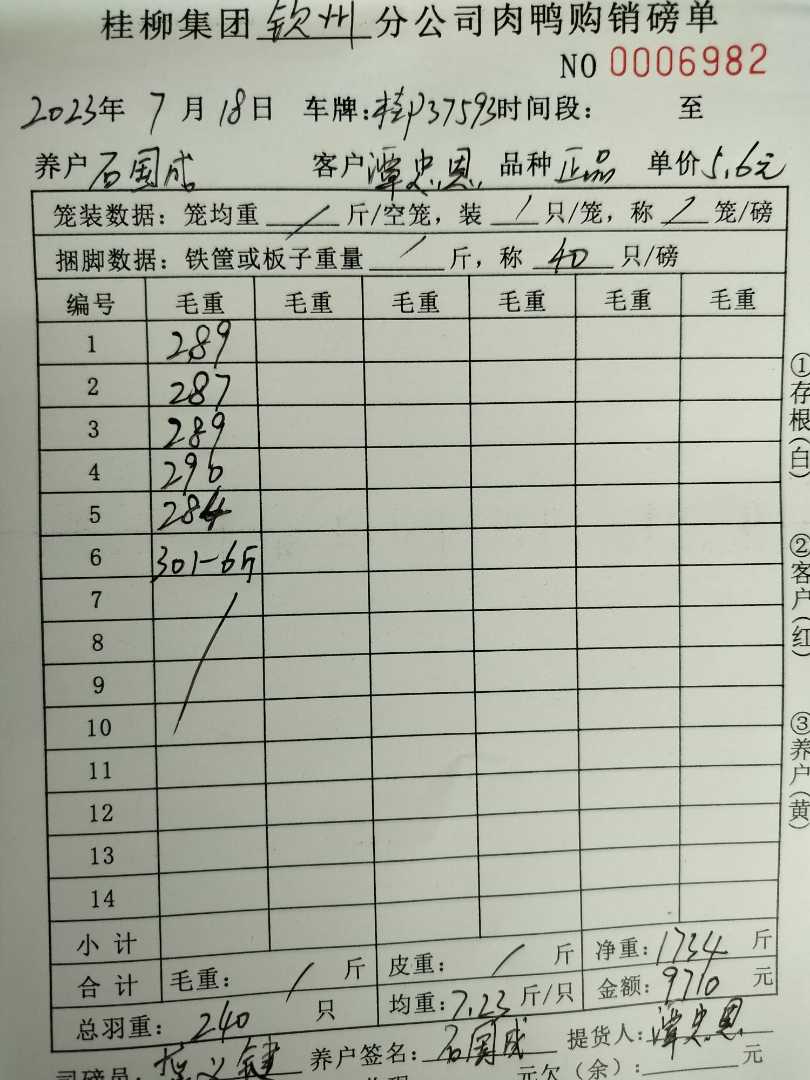 桂柳集团 钦州 分公司肉鸭购销磅单
NO 0006982
2023年 7 月 18日 车牌:桂P37593 时间段: 至
养户 石国成 客户 潭忠恩 品种 正品 单价 5.6元
笼装数据: 笼均重 / 斤/空笼, 装 / 只/笼, 称 / 笼/磅
捆脚数据: 铁筐或板子重量 / 斤, 称 40 只/磅
编号 毛重 毛重 毛重 毛重 毛重
1 289
2 287
3 289
4 296
5 284
6 301-6斤
7
8
9
10
11
12
13
14
小计
合计 毛重: / 斤 皮重: / 斤 净重: 1734 斤
总羽重: 240 只 均重: 7.23 斤/只 金额: 9710 元
司磅员: 义键 养户签名: 石国成 提货人: 潭忠恩
元欠(余): 元
①存根(白)
②客户(红)
③养户(黄)